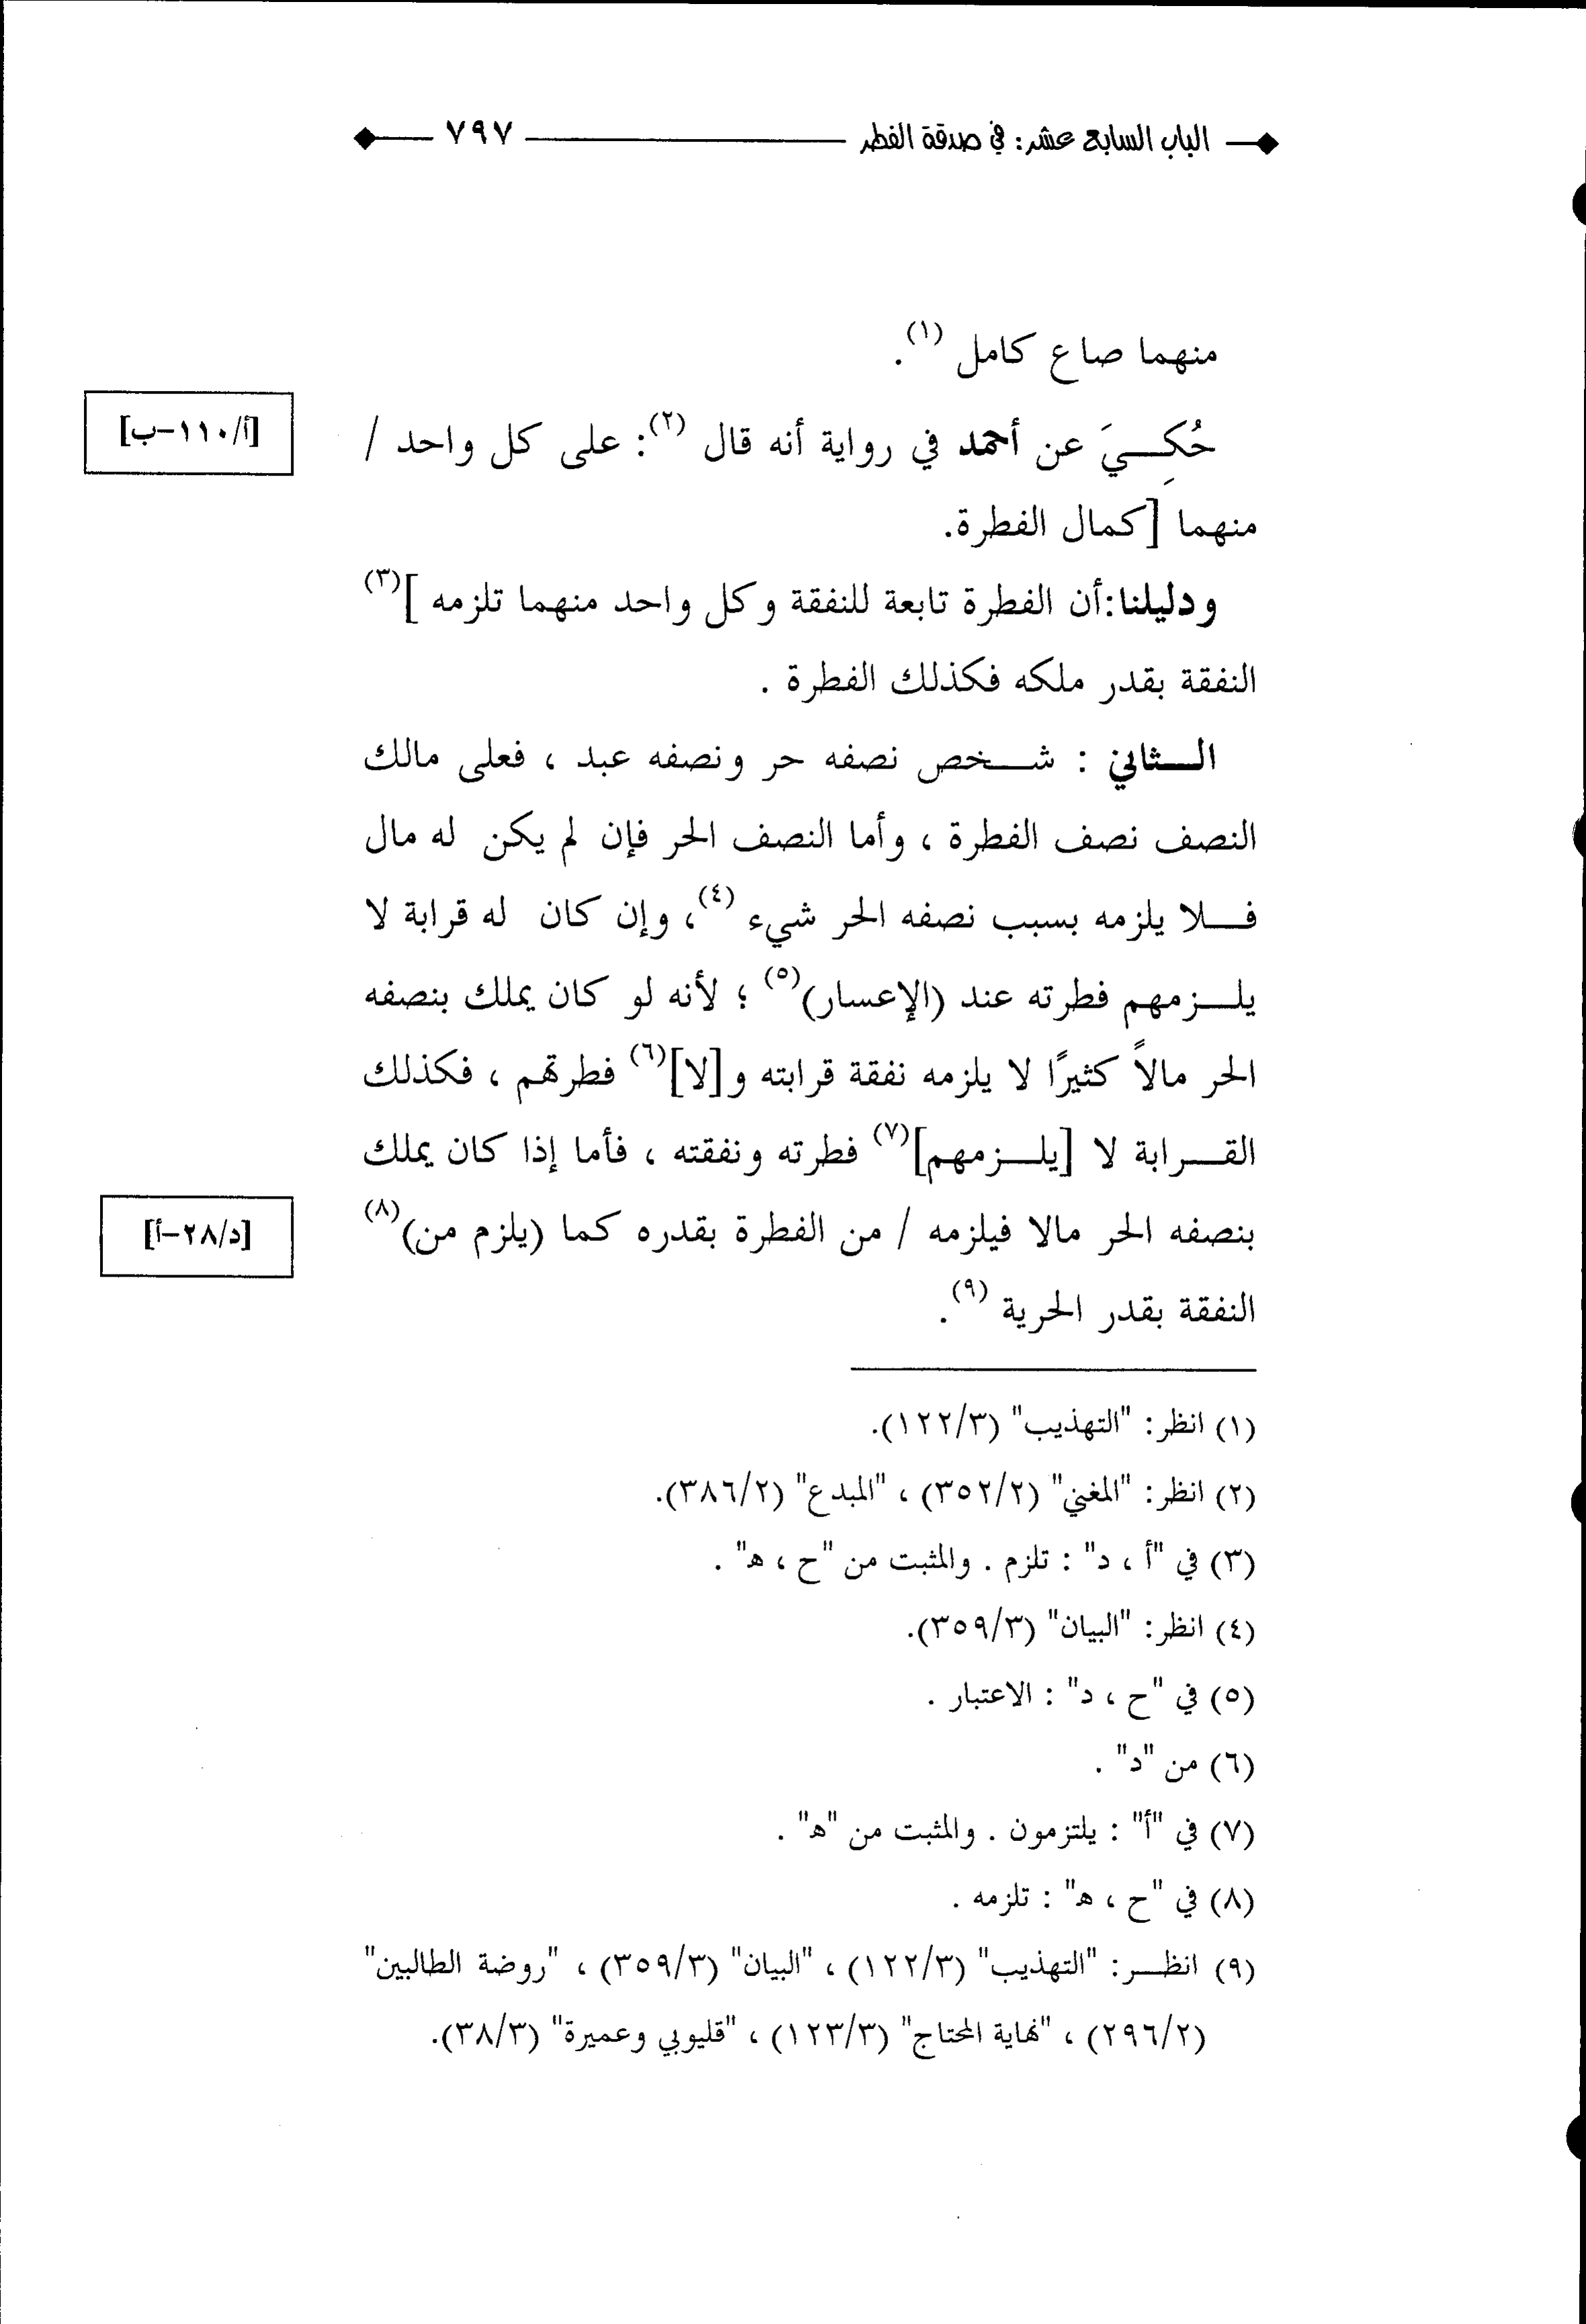 الباب السابع عشر: في صدقة الفطر ٧٩٧
منهما صاع كامل (١).
حُكِيَ عن أحمد في رواية أنه قال (٢): على كل واحد /
[أ/١١٠-ب]
منهما [كمال الفطرة.
ودليلنا:أن الفطرة تابعة للنفقة وكل واحد منهما تلزمه ](٣)
النفقة بقدر ملكه فكذلك الفطرة .
الثاني : شخص نصفه حر ونصفه عبد ، فعلى مالك
النصف نصف الفطرة ، وأما النصف الحر فإن لم يكن له مال
فلا يلزمه بسبب نصفه الحر شيء (٤)، وإن كان له قرابة لا
يلزمهم فطرته عند (الإعسار)(٥) ؛ لأنه لو كان يملك بنصفه
الحر مالاً كثيرًا لا يلزمه نفقة قرابته و[لا](٦) فطرتهم ، فكذلك
القرابة لا [يلزمهم](٧) فطرته ونفقته ، فأما إذا كان يملك
بنصفه الحر مالا فيلزمه / من الفطرة بقدره كما (يلزم من)(٨)
[د/٢٨-أ]
النفقة بقدر الحرية (٩).
(١) انظر: "التهذيب" (١٢٢/٣).
(٢) انظر: "المغني" (٣٥٢/٢) ، "المبدع" (٣٨٦/٢).
(٣) في "أ ، د" : تلزم . والمثبت من "ح ، ه" .
(٤) انظر: "البيان" (٣٥٩/٣).
(٥) في "ح ، د" : الاعتبار .
(٦) من "د" .
(٧) في "أ" : يلتزمون . والمثبت من "ه" .
(٨) في "ح ، ه" : تلزمه .
(٩) انظر: "التهذيب" (١٢٢/٣) ، "البيان" (٣٥٩/٣) ، "روضة الطالبين"
(٢٩٦/٢) ، "نهاية المحتاج" (١٢٣/٣) ، "قليوبي وعميرة" (٣٨/٣).